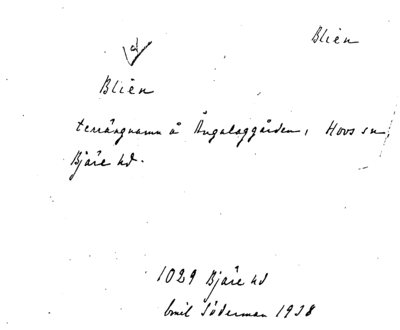 Blien
a
Blién
terrängnamn å Ängalaggården, Hovs sn,
Bjäre hd.
1029 Bjäre hd
Emil Söderman 1938